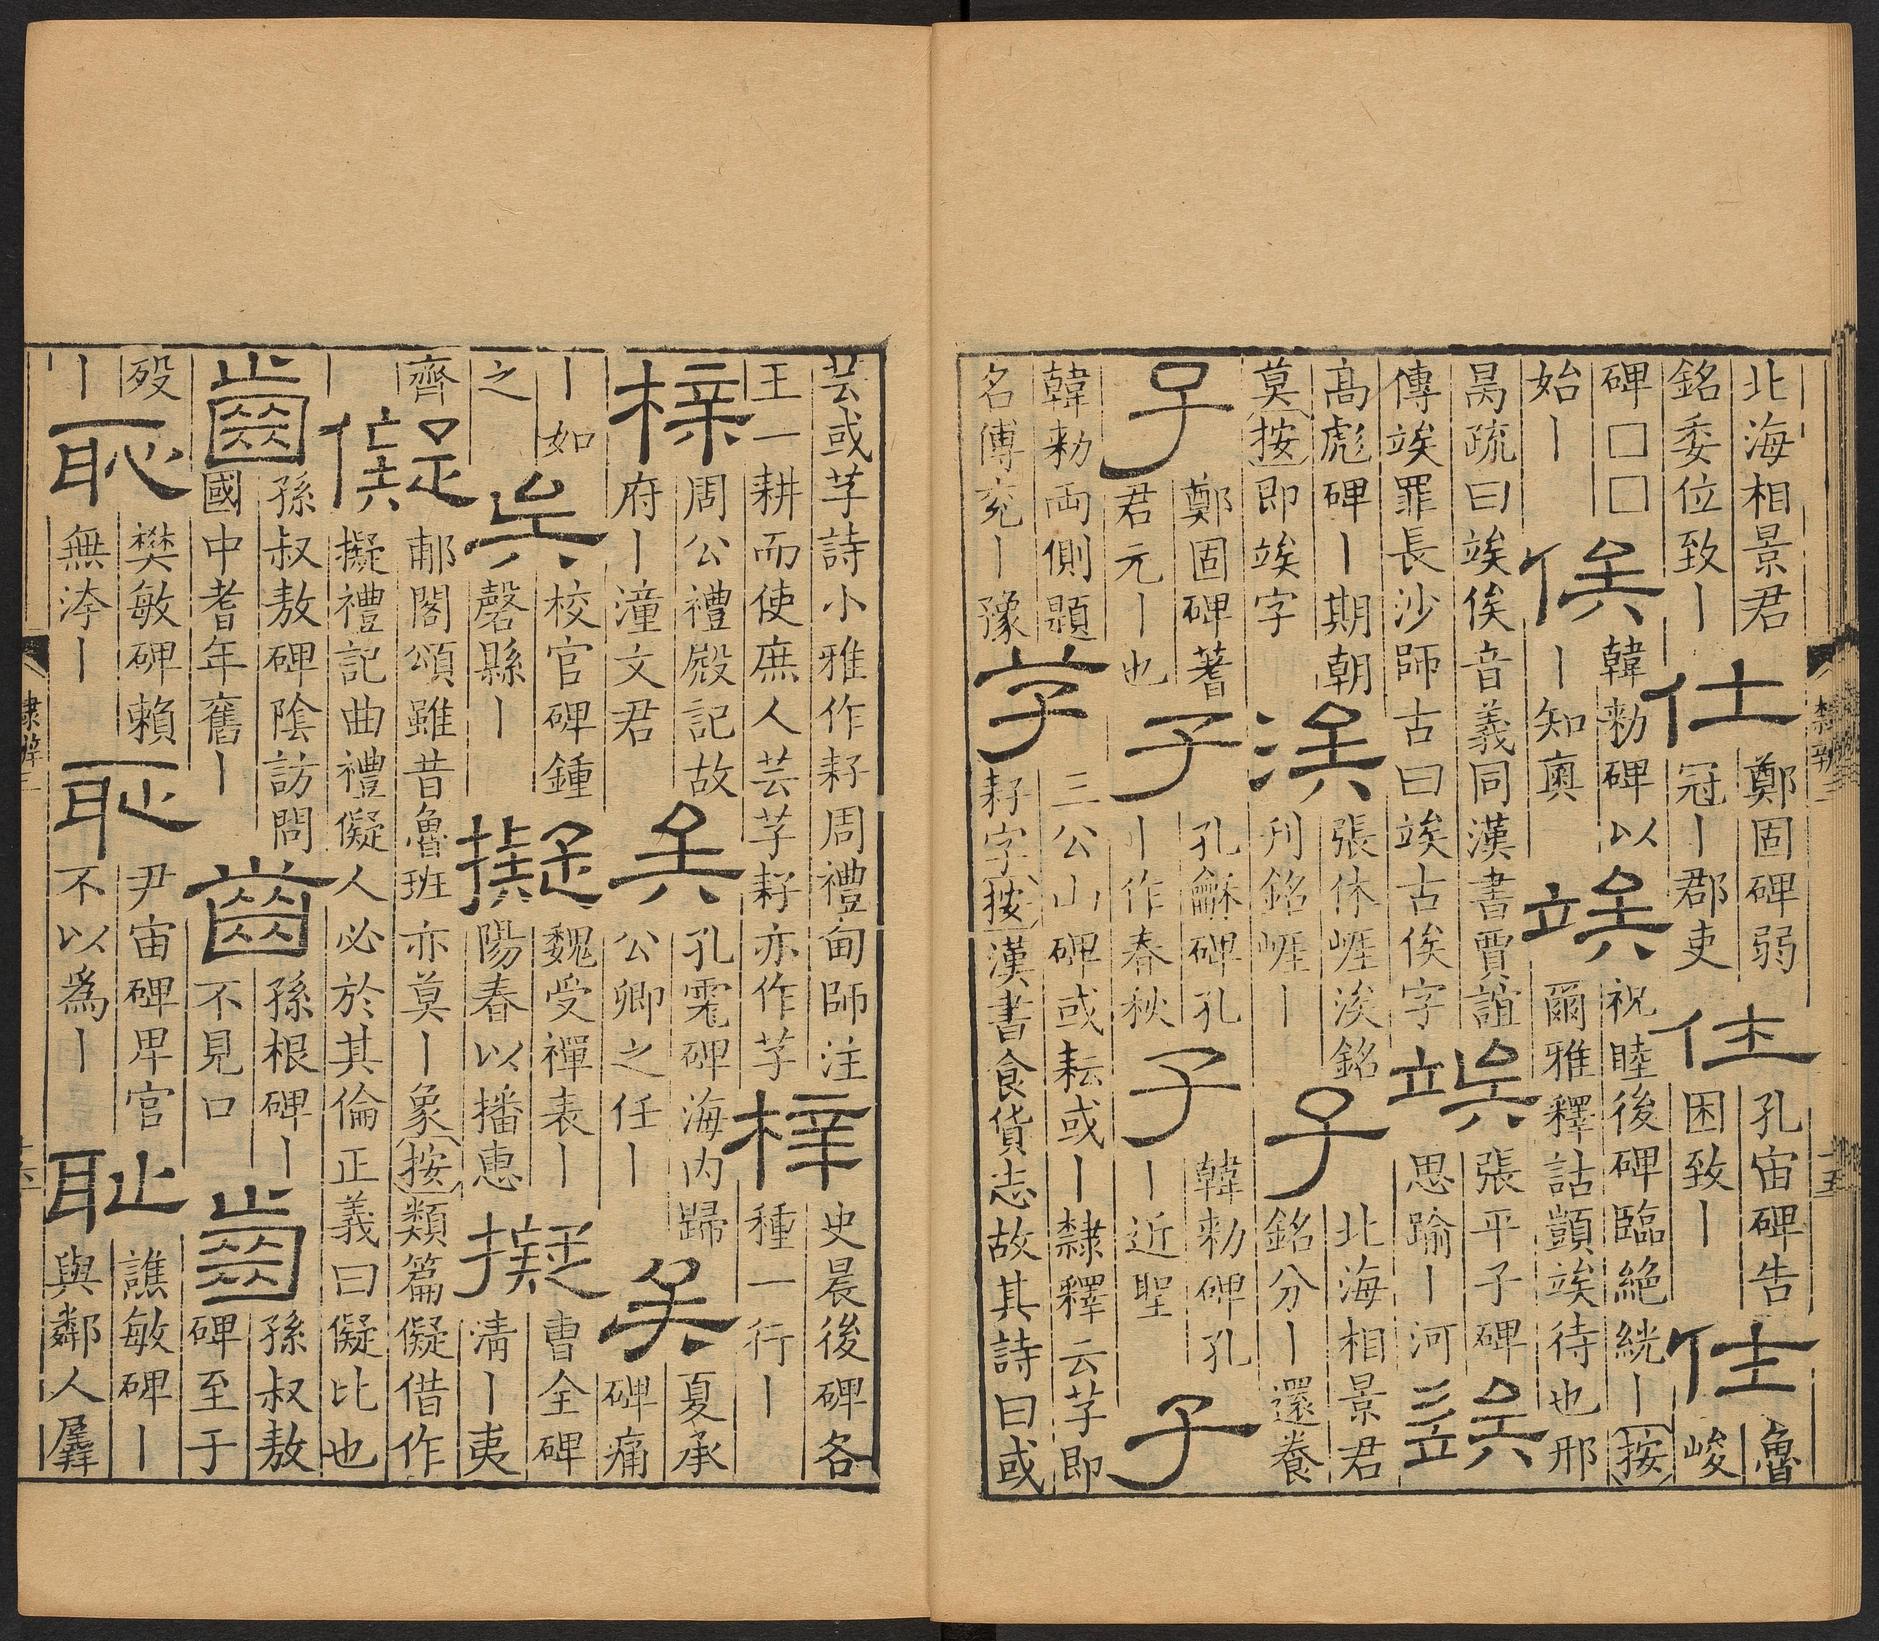 北海相景君
銘委位致丨
仕
鄭固碑弱
冠丨郡吏
仕
孔宙碑告
困致丨
仕
魯
峻
碑□□
始丨
俟
韓勑碑以
丨知奧
竢
祝睦後碑臨絕絖丨按
爾雅釋詁顗竢待也邢
昺疏曰竢俟音義同漢書賈誼
傳竢罪長沙師古曰竢古俟字
竢
張平子碑
思踰丨河
竢
高彪碑丨期朝
莫按即竢字
涘
張休崕涘銘
刋銘崕丨
子
北海相景君
銘分丨還養
子
鄭固碑蓍
君元丨也
子
孔龢碑孔
丨作春秋
子
韓勑碑孔
丨近聖
子
韓勑兩側題
名傅兖丨豫
芓
三公山碑或耘或丨隸釋云芓即
耔字按漢書食貨志故其詩曰或
芸或芓詩小雅作耔周禮甸師注
王一耕而使庶人芸芓耔亦作芓
梓
史晨後碑各
種一行丨
梓
周公禮殿記故
府丨潼文君
矣
孔霐碑海内歸
公卿之任丨
矣
夏承
碑痛
丨如
之
矣
校官碑鍾
磬縣丨
擬
魏受禪表丨
陽春以播恵
擬
曹全碑
清丨夷
齊
丨
儗
郙閣頌雖昔魯班亦莫丨象按類篇儗借作
擬禮記曲禮儗人必於其倫正義曰儗比也
齒
孫叔敖碑陰訪問
國中耆年舊丨
齒
孫根碑丨
不見口
齒
孫叔敖
碑至于
歿
丨
恥
樊敏碑賴
無洿丨
恥
尹宙碑卑官
不以爲丨
耻
譙敏碑丨
與鄰人羼